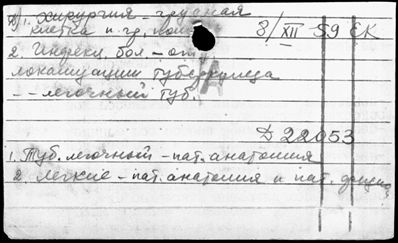 А) 1. Хирургия – грудная
клетка и гр. пол
8/XII 59 СК
2. Инфекц. бол. – отд.
локализации туберкулеза
– – легочный туб.
А
D 22053
1. Туб. легочный – пат. анатомия
2. Легкие – пат. анатомия и пат. физиол